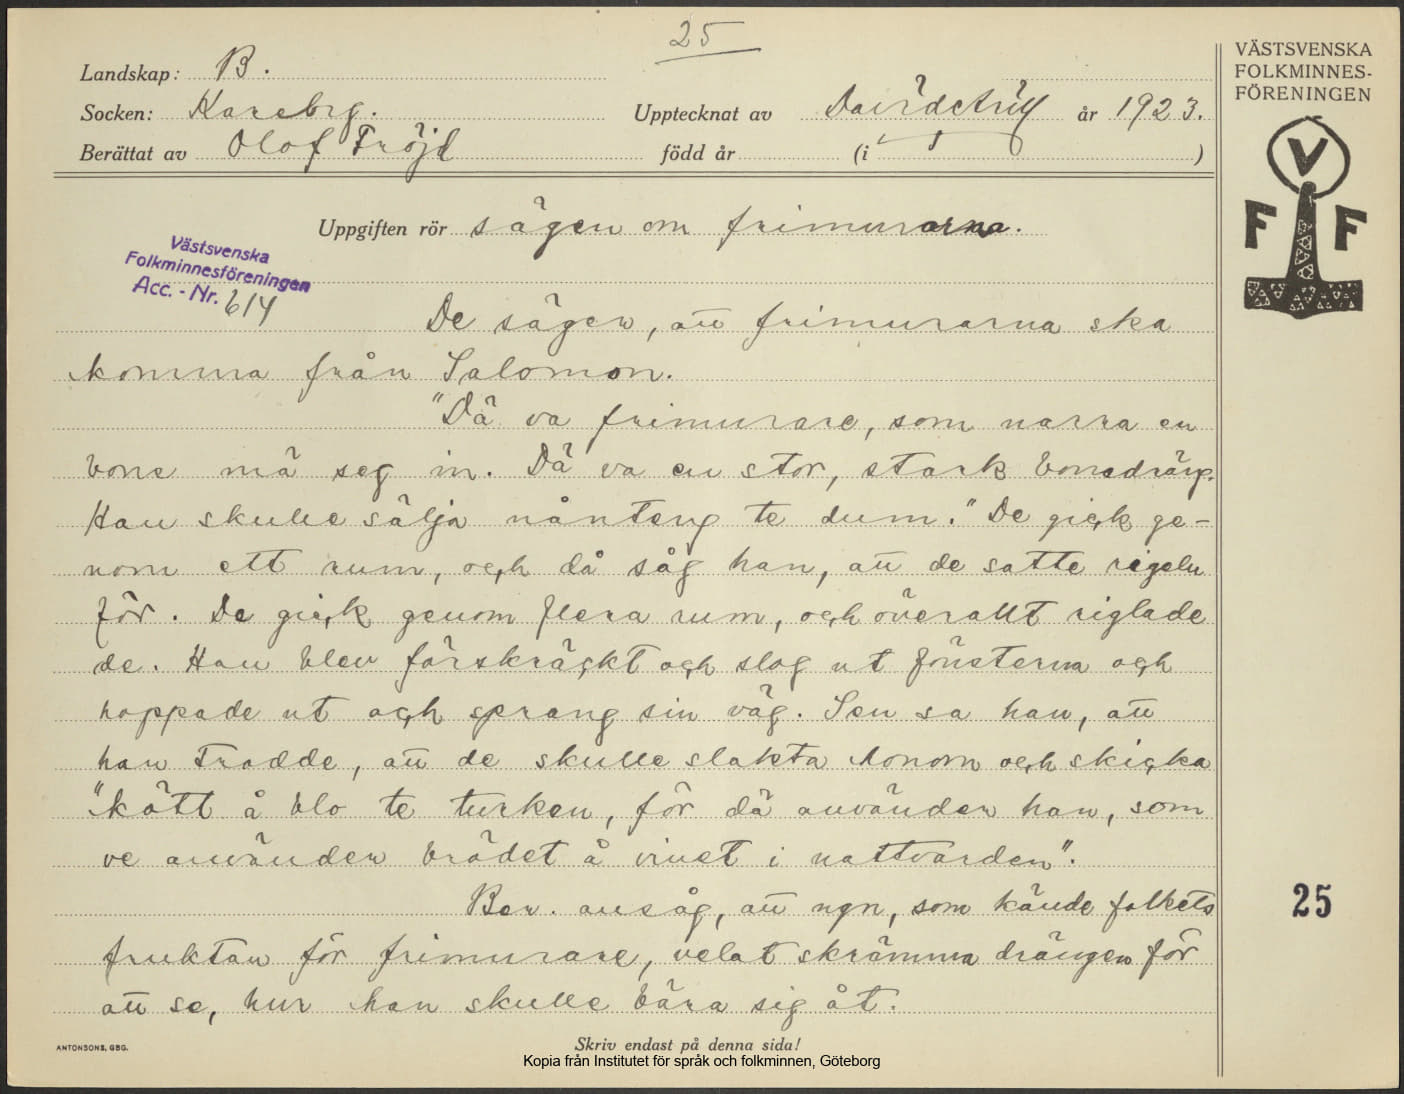 25
Landskap: B.
Socken: Kareby.
Upptecknat av år 1923.
Berättat av Olof Fröjd född år (i )
VÄSTSVENSKA
FOLKMINNES-
FÖRENINGEN
V
F F
Uppgiften rör sägen om frimurarna.
Västsvenska
Folkminnesföreningen
Acc. - Nr. 614
De säger, att frimurarna ska
komma från Salomon.
"Dä va frimurare, som narra en
bone mä seg in. Dä va en stor, stark bonedräng.
Han skulle sälja nånteng te dum." De gick ge-
nom ett rum, och då såg han, att de satte regeln
för. De gick genom flera rum, och överallt riglade
de. Han blev förskräckt och slog ut fönsterna och
hoppade ut och sprang sin väg. Sen sa han, att
han trodde, att de skulle slakta honom och skicka
"kött å blo te turken, för dä använder han, som
ve använder brödet å vinet i nattvarden".
Ber. ansåg, att ngn, som kände folkets
fruktan för frimurare, velat skrämma drängen för
att se, hur han skulle bära sig åt.
25
ANTONSONS, GBG.
Skriv endast på denna sida!
Kopia från Institutet för språk och folkminnen, Göteborg